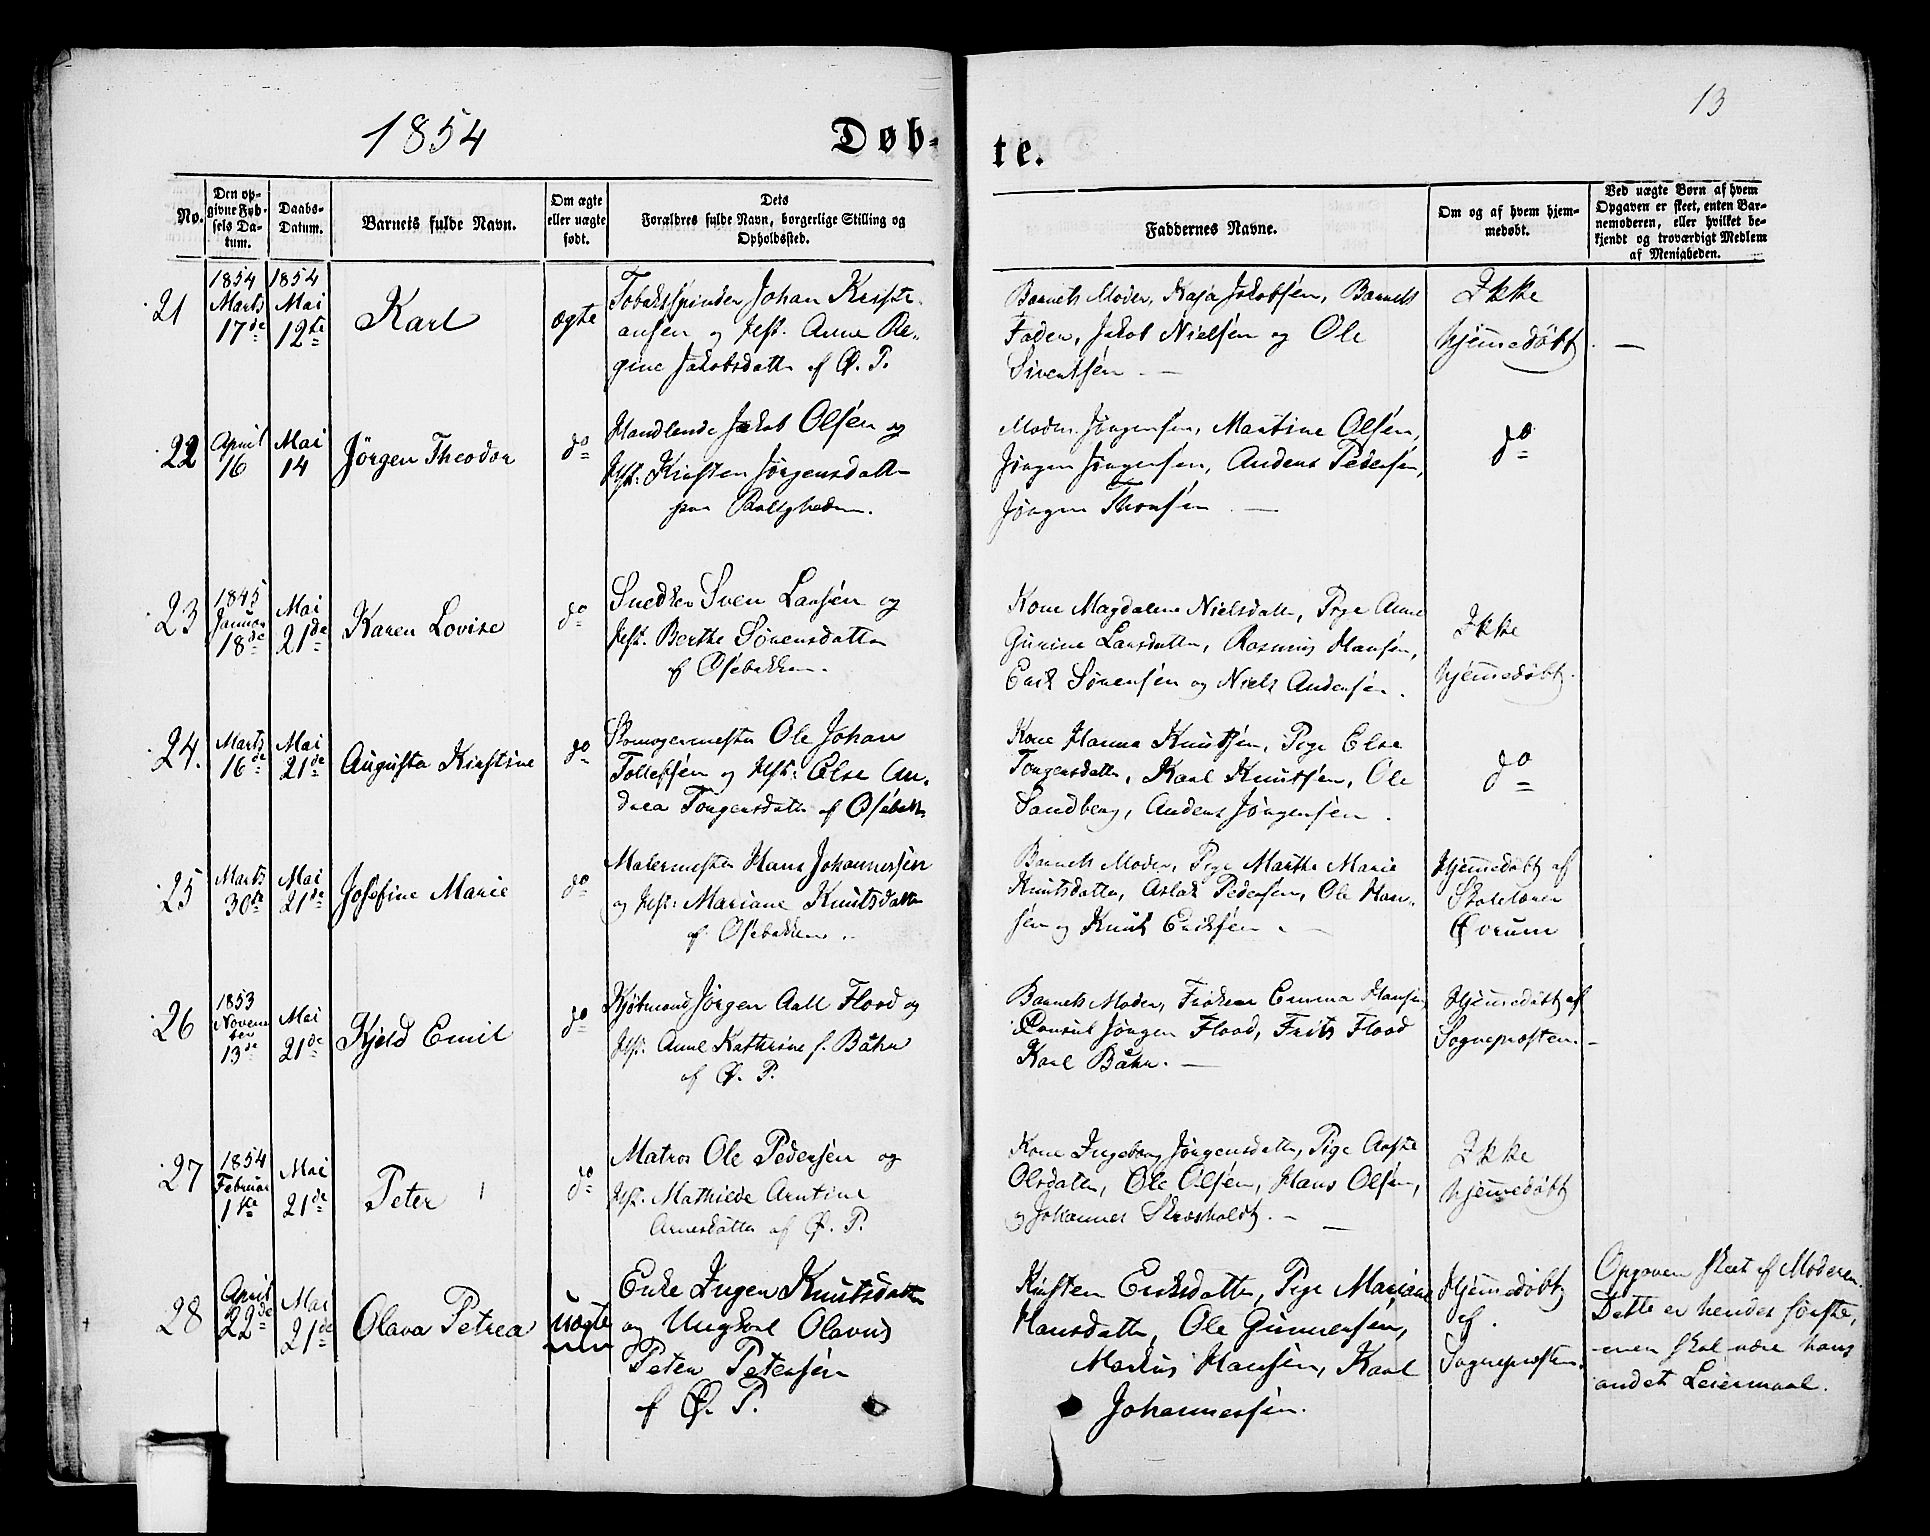 1854
Døb-
te.
13
No.
Den op-
givne Fød-
sels Da-
tum.
Daabs-
Datum.
Barnets fulde Navn.
Om ægte
eller uægte
født.
Dets
Forældres fulde Navn, borgerlige Stilling og
Opholdssted.
Faddernes Navne.
Om og af hvem hjem-
medøbt.
Ved uægte Børn af hvem
Opgaven er skeet, enten Bar-
nemoderen, eller hvilket be-
kjendt og troværdigt Medlem
af Menigheden.
21
1854
Marts
17de
1854
Mai
12te
Karl
ægte
Tobakspinder Johan Kristi-
ansen og Hst. Anne Re-
gine Jakobsdatter af Ø. P.
Barnets Moder, Kaja Jakobsen, Barnets
Fader, Jakob Nielsen og Ole
Sivertsen. —
Ikke
hjemmedøbt.
—
22
April
16
Mai
14
Jörgen Theodor
do
Handlende Jakob Olsen og
Hst: Kirsten Jörgensdatter
paa Balligheden.
Moder Jörgensen, Martine Olsen,
Jörgen Jörgensen, Anders Pedersen,
Jörgen Thorsen —
do
23
1845
Januar
18de
Mai
21de
Karen Lovise
do
Snedker Sven Larsen og
Hst. Berthe Sörensdatter
af Osebakken.
Kone Magdalene Nielsdatter, Pige Anne
Gurine Larsdatter, Rasmus Hansen,
Erik Sörensen og Niels Andersen.
Ikke
hjemmedøbt.
24.
Marts
16de
Mai
21de
Augusta Kirstine
do
Skomagermester Ole Johan
Tollefsen og Hst: Else An-
drea Torgersdatter af Osebak.
Kone Hanna Knutsen, Pige Else
Torgersdatter, Karl Knutsen, Ole
Sandberg, Anders Jörgensen.
do
25
Marts
30te
Mai
21de
Josefine Marie
do
Malermester Hans Johannessen
og Hst: Mariane Knutsdatter
af Osebakken.
Barnets Moder, Pige Marthe Marie
Knutsdatter, Aslak Pedersen, Ole Han-
sen og Knut Eriksen. —
Hjemmedøbt af
Skolelærer
Øvrum
26
1853
Novem-
ber
13de
Mai
21de
Kjeld Emil
do
Kjøbmand Jörgen Aall Flood og
Hst: Anne Kathrine f. Båhr
af Ø. P.
Barnets Moder, Frøken Emma Hansen,
Consul Jörgen Flood, Frits Flood
Karl Båhr. —
Hjemmedøbt af
Sognepresten.
27
1854
Februar
1ste
Mai
21de
Peter
do
Matros Ole Pedersen og
Hst. Mathilde Arntine
Arnesdatter af Ø. P.
Kone Ingeborg Jörgensdatter, Pige Aaste
Olsdatter, Ole Olsen, Hans Olsen,
og Johannes —
Ikke
hjemmedøbt
28
April
22de
Mai
21de
Olava Petrea
uægte
Enke Inger Knutsdatter
og Ungkarl Olavus
Peter Petersen
af Ø. P.
Kirsten Eriksdatter, Pige Mariane
Hansdatter, Ole Gunnersen,
Markus Hansen, Karl
Johannessen.
Hjemmedøbt
af
Sognepresten.
Opgaven skeet af Moderen.
Dette er hendes første,
men skal være hans
andet Leiermaal.